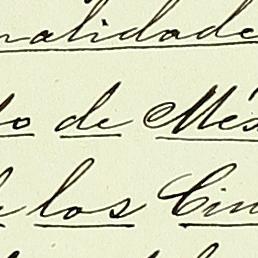 nalidade
do de Méx
e los Cin